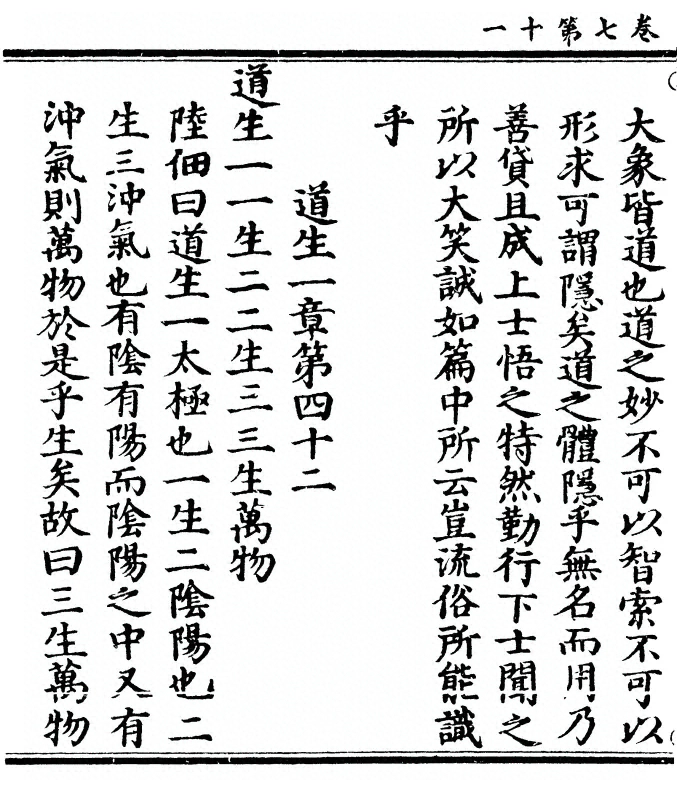 卷七第十一
大象皆道也道之妙不可以智索不可以
形求可謂隱矣道之體隱乎無名而用乃
善貸且成上士悟之特然勤行下士聞之
所以大笑誠如篇中所云豈流俗所能識
乎
道生一章第四十二
道生一一生二二生三三生萬物
陸佃曰道生一太極也一生二陰陽也二
生三沖氣也有陰有陽而陰陽之中又有
沖氣則萬物於是乎生矣故曰三生萬物